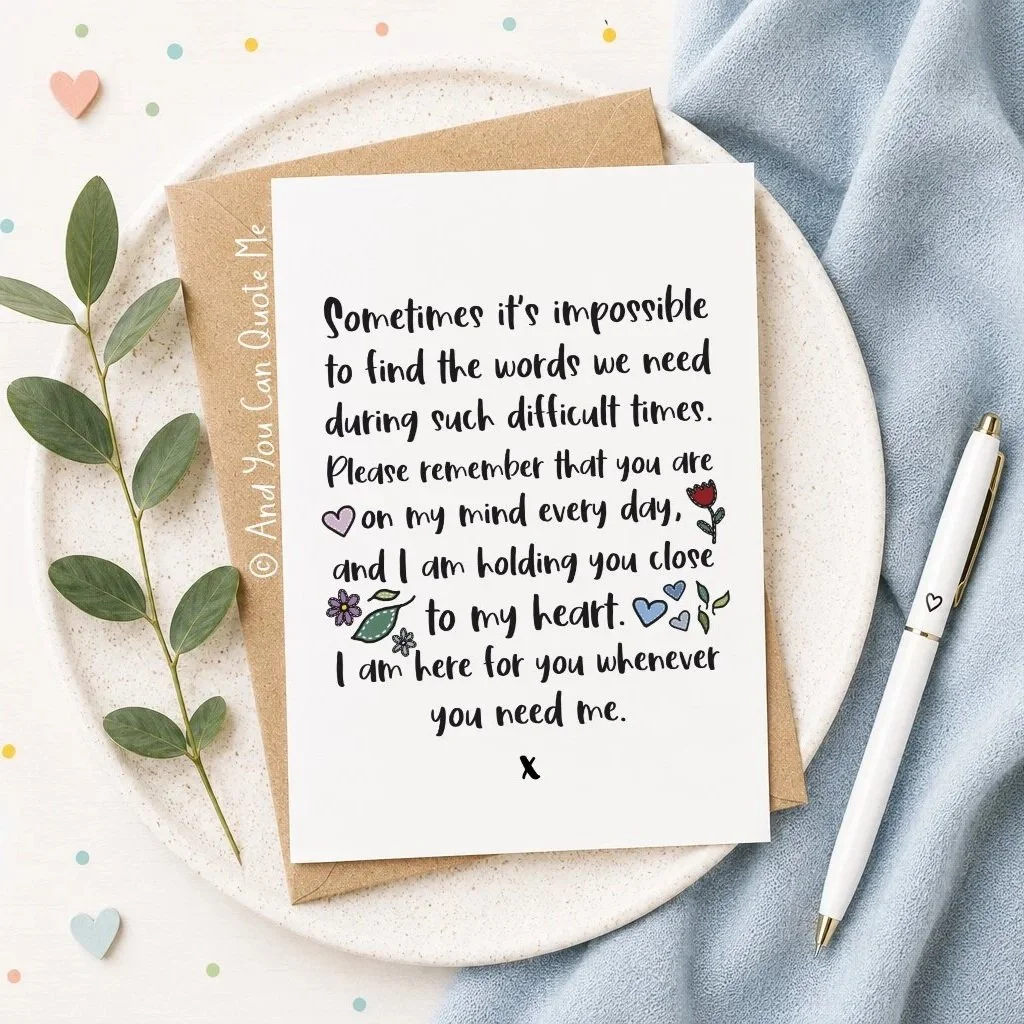 Sometimes it's impossible
to find the words we need
during such difficult times.
Please remember that you are
on my mind every day,
and I am holding you close
to my heart.
I am here for you whenever
you need me.
x
© And You Can Quote Me